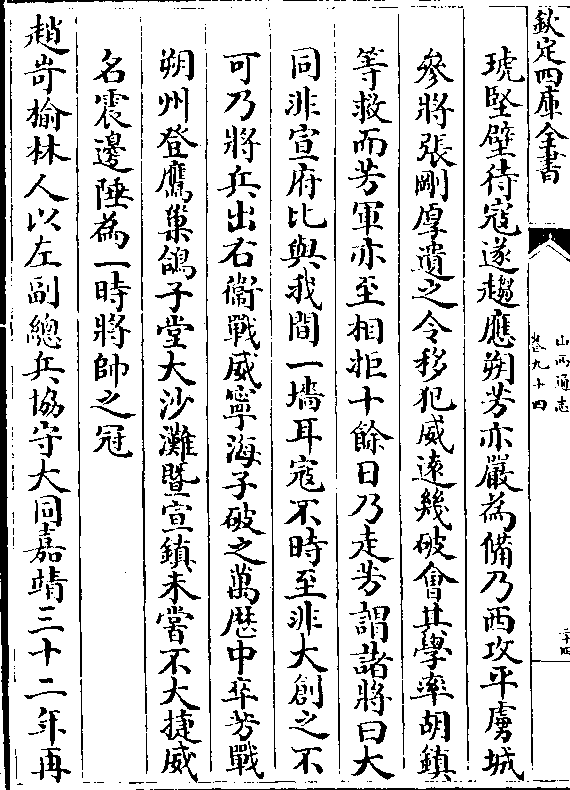 欽定四庫全書
山西通志
卷九十四
琥堅壁待寇遂趨應朔芳亦嚴為備乃西攻平虜城
參將張剛厚遺之令移犯威遠幾破會其學率胡鎮
等救而芳軍亦至相拒十餘日乃走芳謂諸將曰大
同非宣府比與我間一墻耳寇不時至非大創之不
可乃將兵出右衛戰威寧海子破之萬厯中卒芳戰
朔州登鷹巢鴿子堂大沙灘暨宣鎮未嘗不大捷威
名震邊陲為一時將帥之冠
趙岢榆林人以左副總兵協守大同嘉靖三十二年再